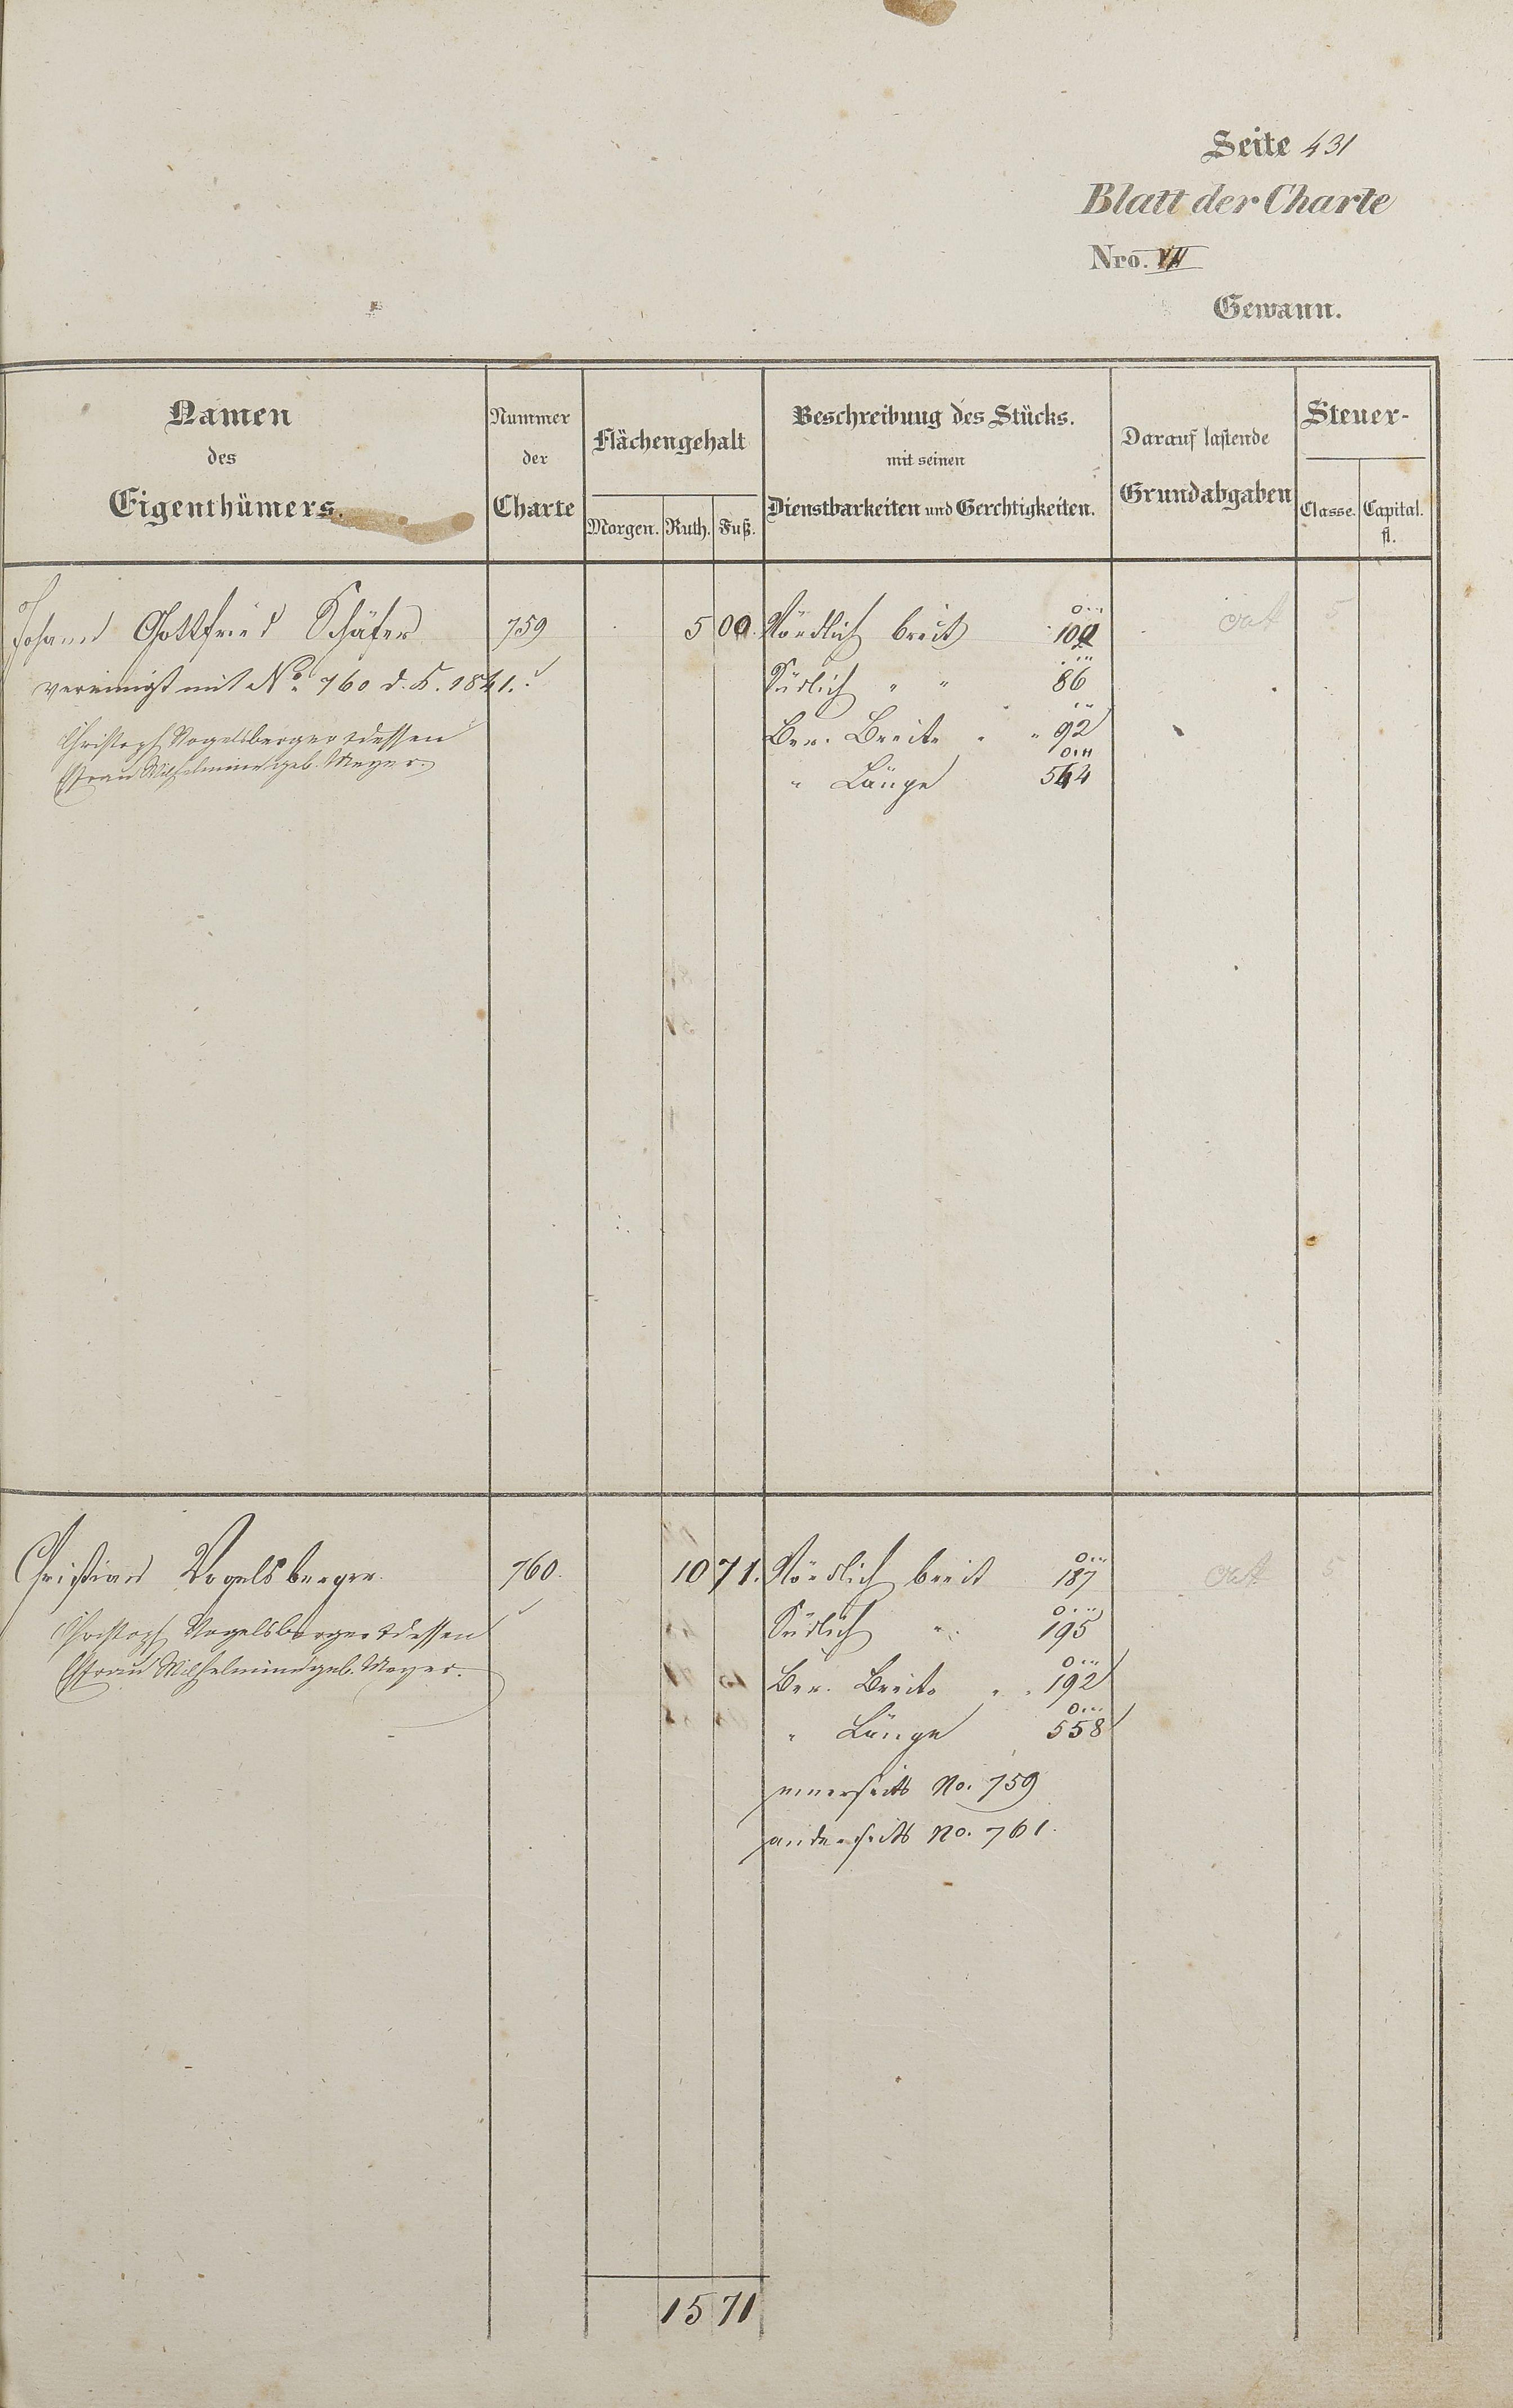 Seite 431
Blatt der Charte
Nro. VII
Gewann.
Namen des Eigenthümers.
Nummer der Charte
Flächengehalt
Morgen. Ruth. Fuß.
Beschreibung des Stücks. mit seinen Dienstbarkeiten und Gerchtigkeiten.
Darauf lastende Grundabgaben
Steuer-
Classe. Capital. fl.
Johann Gottfried Schäfer 759 5 00 Nördlich breit
vereinigt mit No. 760 d. H. 1841. Südlich " " 86
Christoph Vogelsberger & dessen Ber. Breite " " 92
Efrau Wilhelmine geb. Meyer. " Länge 564
Christian Vogelsberger 760. 10 71. Nördlich breit 187 5
Christoph Vogelsberger & dessen Südlich " 195
Efrau Wilhelmine geb. Meyer. Ber. Breite " " 192
" Länge 558
einerseits No. 759
anderseits No. 761.
15 71